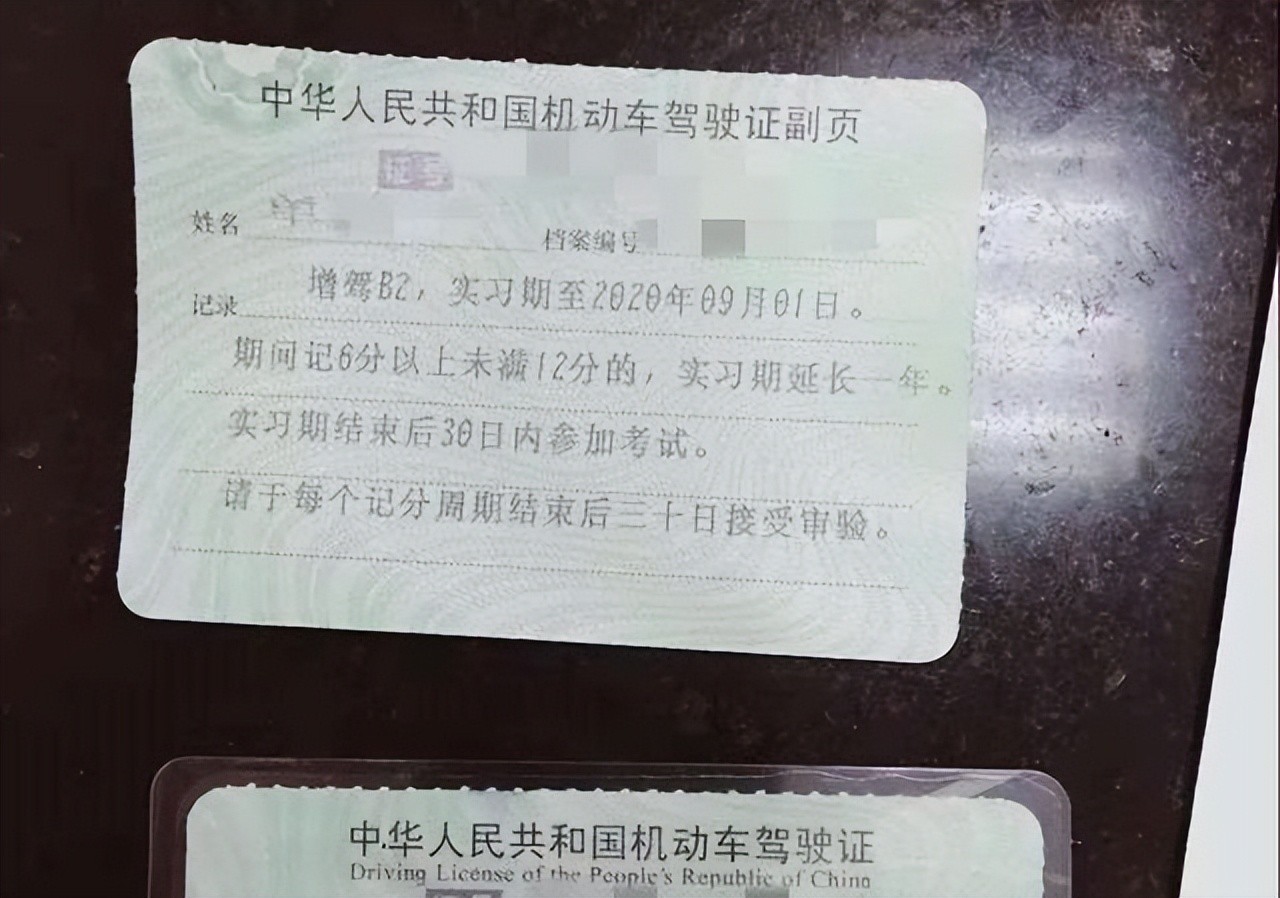 中华人民共和国机动车驾驶证副页
证号
姓名
档案编号
记录 增驾B2，实习期至2020年09月01日。
期间记6分以上未满12分的，实习期延长一年。
实习期结束后30日内参加考试。
请于每个记分周期结束后三十日接受审验。
中华人民共和国机动车驾驶证
Driving License of the People's Republic of China